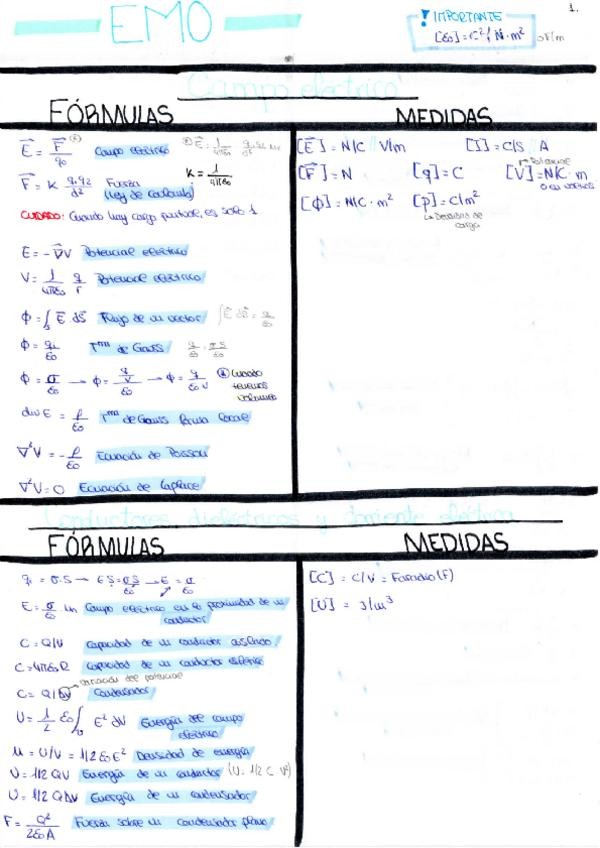 EMO
1.
! IMPORTANTE
[ε0] = C²/N·m² o F/m
Campo eléctrico
FÓRMULAS
MEDIDAS
E = F/q0 Campo eléctrico
K = 1/4πε0
F = K q1·q2/d² Fuerza (Ley de Coulomb)
CUIDADO: Cuando hay carga puntual, es solo 1
E = -∇V Potencial eléctrico
V = 1/4πε0 q/r Potencial eléctrico
ϕ = ∫s E dS Flujo de un vector
∫E dS = q/ε0
ϕ = q/ε0 Tma de Gauss
q/ε0 = σ·S/ε0
ϕ = σ/ε0 → ϕ = q/V/ε0 → ϕ = q/ε0 V
Cuando tenemos volumen
div E = ρ/ε0 Tma de Gauss forma local
∇²V = -ρ/ε0 Ecuación de Poisson
∇²V = 0 Ecuación de Laplace
[E] = N/C // V/m
[I] = C/S // A
[F] = N
[q] = C
[V] = N/C · m
[ϕ] = N/C · m²
[ρ] = C/m²
↳ Densidad de carga
Conductores, dieléctricos y corriente eléctrica
FÓRMULAS
MEDIDAS
q = σ·S → E·S = σS/ε0 → E = σ/ε0
E = σ/ε0 Un Campo eléctrico en la proximidad de un conductor
C = Q/V Capacidad de un conductor aislado
C = 4πε0R Capacidad de un conductor esférico
variación del potencial
C = Q/ΔV Condensador
U = 1/2 ε0 ∫v E² dV Energía del campo eléctrico
u = U/V = 1/2 ε0 E² Densidad de energía
U = 1/2 QV Energía de un conductor (U = 1/2 C V²)
U = 1/2 QΔV Energía de un condensador
F = Q²/2ε0A Fuerza sobre un condensador plano
[C] = C/V = Faradio (F)
[U] = J/m³